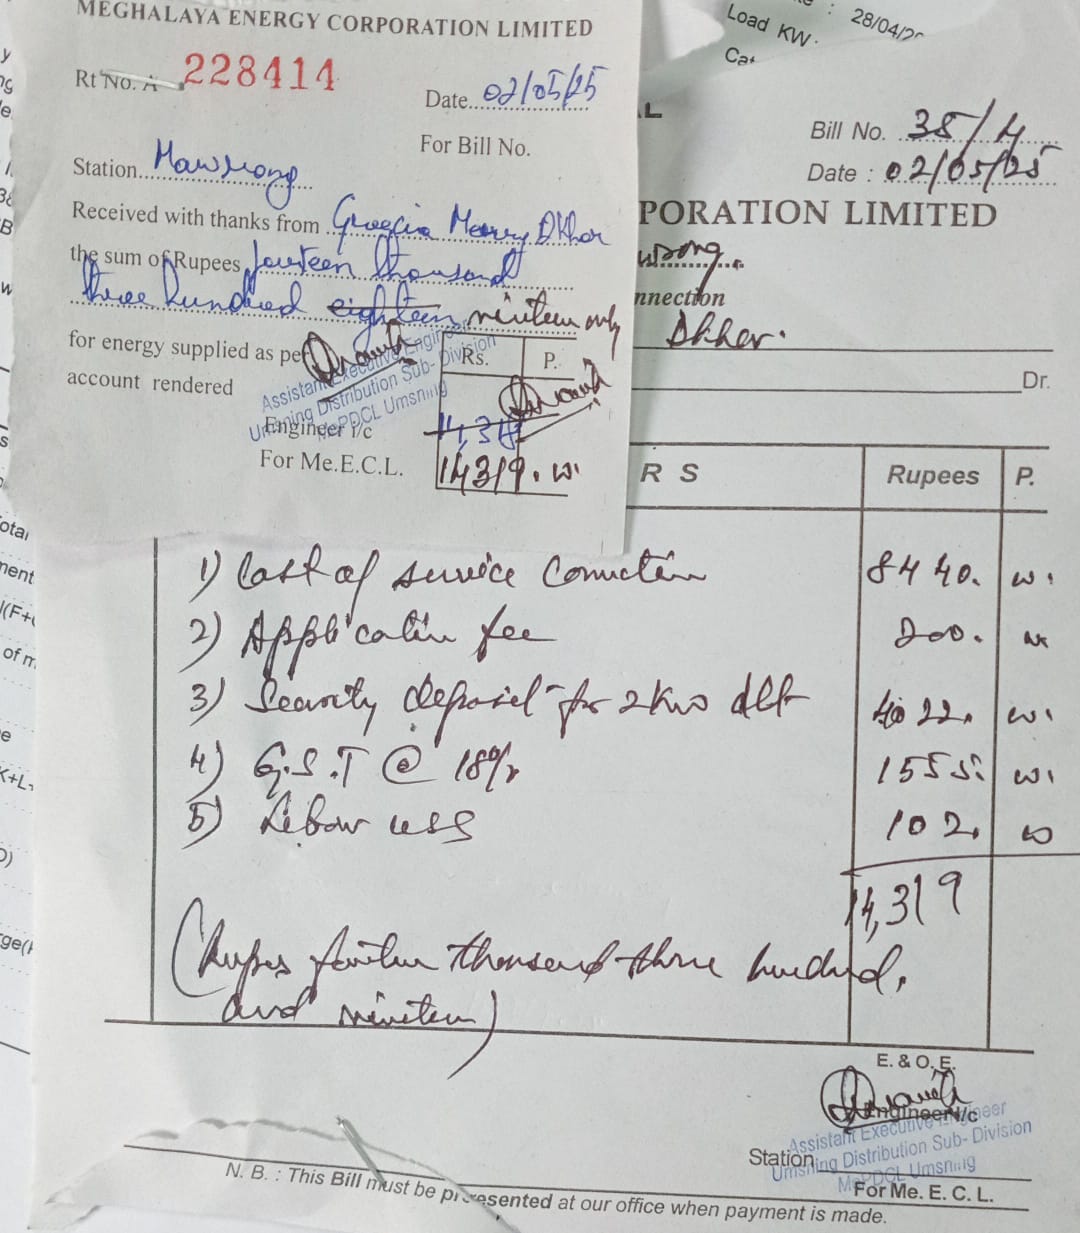 MEGHALAYA ENERGY CORPORATION LIMITED
Rt No. A 228414
Date 02/05/25
For Bill No.
Station Mawrong
Received with thanks from Greefia Merry Dkhar
the sum of Rupees fourteen thousand
three hundred eighteen nineteen only
for energy supplied as per
account rendered
Rs. P.
Assistant Executive Engineer
Umsning Distribution Sub-Division
MePDCL Umsning
Engineer i/c
For Me.E.C.L.
14,318
14319.
: 28/04/2
Load KW
Bill No. 35/4
Date : 02/05/25
PORATION LIMITED
nnection
Dkhar.
Dr.
R S Rupees P.
1) Cost of service connection 8440.
2) Application fee 200.
3) Security deposit for 2kw dlt 4022.
4) G.S.T @ 18% 1555.
5) Labour cess 102.
14,319
(Rupees fourteen thousand three hundred,
and nineteen)
E. & O. E.
Engineer i/c
Assistant Executive Engineer
Station
Umsning Distribution Sub-Division
MePDCL Umsning
For Me. E. C. L.
N. B. : This Bill must be presented at our office when payment is made.